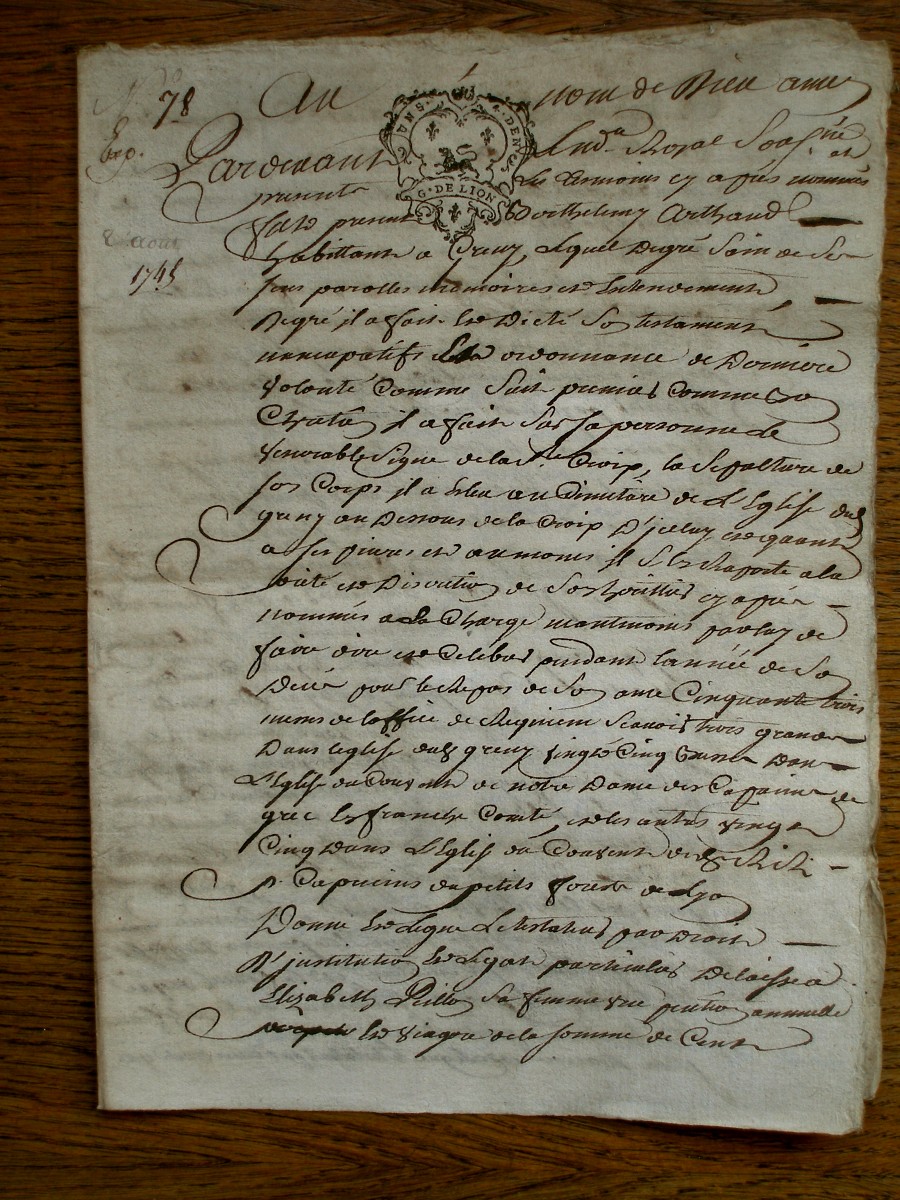 N.° 78
Exp.
Août
1745
UN S. DEN.
G. DE LION
Au nom de Dieu amen
Pardevant Royal Soussigné et
présents Les temoins cy apres nommés
fut present Berthelemy Arthaud
habittant a Greny, Lequel De gré Sain de Ses
sens parolles memoires et Entendement
De gré il a fait Et Dicté Son testament
nuncupatifs Et ordonnance de Derniere
Volonté Comme Suit premier Comme bon
Chretien il a fait Sur sa personne le
Venerable Signe de la Ste. Croix, la Sepulture de
son Corps il a Eleu au Cimitiere de L'Eglise dud.
greny au Dessous de la Croix D'jceluy et quant
a ses pieres et aumones il S'en Raporte a la
pieté et Discretion de Ses heritiers cy apres
nommés a la Charge neantmoins par luy de
faire dire et Celebrer pendant l'année de Son
Decés pour le Repos de Son ame Cinquante trois
messes de l'office de Requiem Scavoir trois grandes
Dans l'eglise dud. greny vingt Cinq basses Dans
L'Eglise du Couvent de notre Dame des Capucins de
grec En franche Comté, et les autres vingt
Cinq Dans L'Eglise du Couvent des RR.
P. Capucins du petits forest de Lyon
Donne Et Legue Le testateur par Droit
D'justitution Et Legat particulier Delaisse a
Elizabeth sa femme une pention annuelle
Et viagere de la somme de Cent